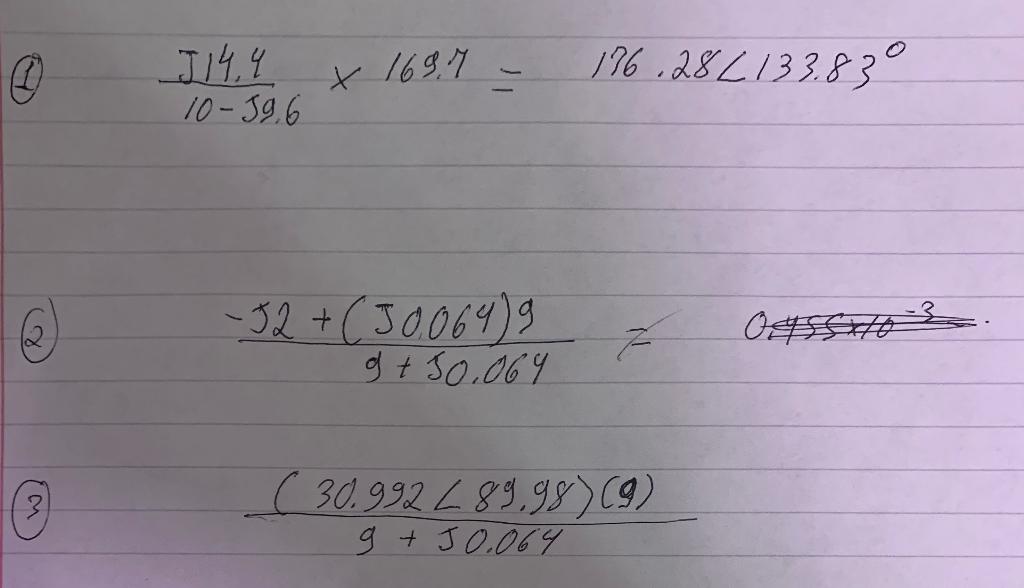 ① J14.4 / 10 - J9.6 × 169.7 = 176.28∠133.83°
② -J2 + (J0.064)9 / 9 + J0.064 = 0.455×10^-3
③ (30.992∠89.98)(9) / 9 + J0.064